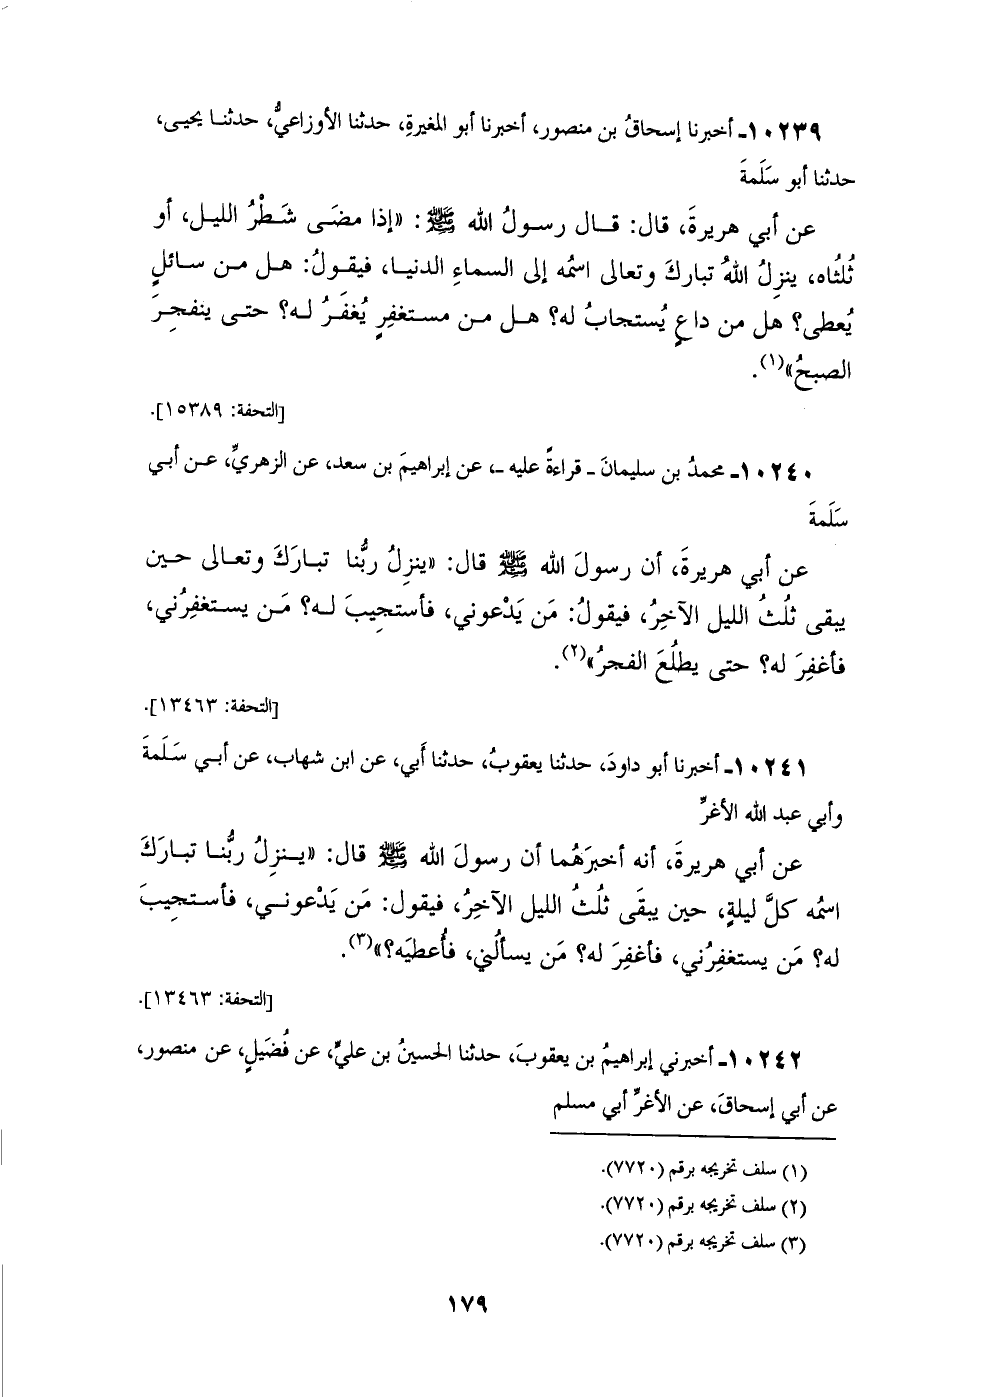 ١٠٢٣٩ـ أخبرنا إسحاقُ بن منصور، أخبرنا أبو المغيرةِ، حدثنا الأوزاعيُّ، حدثنا يحيى،
حدثنا أبو سَلَمةَ
عن أبي هريرةَ، قال: قال رسولُ الله ﷺ: «إذا مضَى شَطْرُ الليل، أو
ثُلُثاه، ينزِلُ اللهُ تباركَ وتعالى اسمُه إلى السماءِ الدنيا، فيقولُ: هل من سائلٍ
يُعطى؟ هل من داعٍ يُستجابُ له؟ هل من مستغفِرٍ يُغفَرُ له؟ حتى ينفجِرَ
الصبحُ»(١).
[التحفة: ١٥٣٨٩].
١٠٢٤٠ـ محمدُ بن سليمانَ ـ قراءةً عليه ـ، عن إبراهيمَ بن سعد، عن الزهريِّ، عن أبي
سَلَمةَ
عن أبي هريرةَ، أن رسولَ الله ﷺ قال: «ينزِلُ ربُّنا تبارَكَ وتعالى حين
يبقى ثُلُثُ الليل الآخِرُ، فيقولُ: مَن يَدْعوني، فأستجيبَ له؟ مَن يستغفِرُني،
فأغفِرَ له؟ حتى يطلُعَ الفجرُ»(٢).
[التحفة: ١٣٤٦٣].
١٠٢٤١ـ أخبرنا أبو داودَ، حدثنا يعقوبُ، حدثنا أَبي، عن ابن شهاب، عن أبي سَلَمةَ
وأبي عبد الله الأغرِّ
عن أبي هريرةَ، أنه أخبرَهُما أن رسولَ الله ﷺ قال: «ينزِلُ ربُّنا تبارَكَ
اسمُه كلَّ ليلةٍ، حين يبقَى ثُلُثُ الليل الآخِرُ، فيقول: مَن يَدْعوني، فأستجيبَ
له؟ مَن يستغفِرُني، فأغفِرَ له؟ مَن يسألُني، فأُعطيَه؟»(٣).
[التحفة: ١٣٤٦٣].
١٠٢٤٢ـ أخبرني إبراهيمُ بن يعقوبَ، حدثنا الحسينُ بن عليٍّ، عن فُضَيلٍ، عن منصور،
عن أبي إسحاقَ، عن الأغرِّ أبي مسلم
(١) سلف تخريجه برقم (٧٧٢٠).
(٢) سلف تخريجه برقم (٧٧٢٠).
(٣) سلف تخريجه برقم (٧٧٢٠).
١٧٩